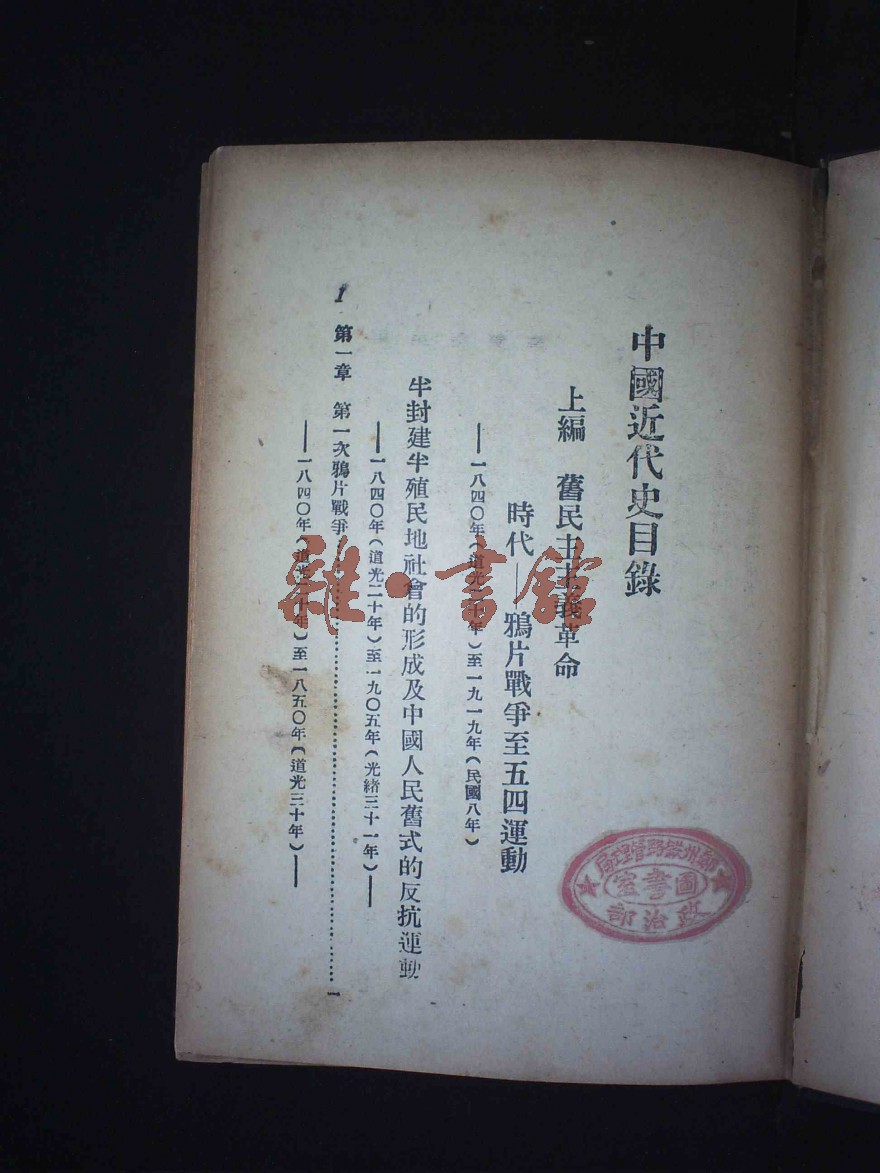 中國近代史目錄
上編　舊民主主義革命
時代——鴉片戰爭至五四運動
——一八四〇年（道光二十年）至一九一九年（民國八年）
半封建半殖民地社會的形成及中國人民舊式的反抗運動
——一八四〇年（道光二十年）至一九〇五年（光緒三十一年）——
第一章　第一次鴉片戰爭……………………………一
——一八四〇年（道光二十年）至一八五〇年（道光三十年）——
1
雜·書館
鄭州鐵路管理局
圖書室
政治部